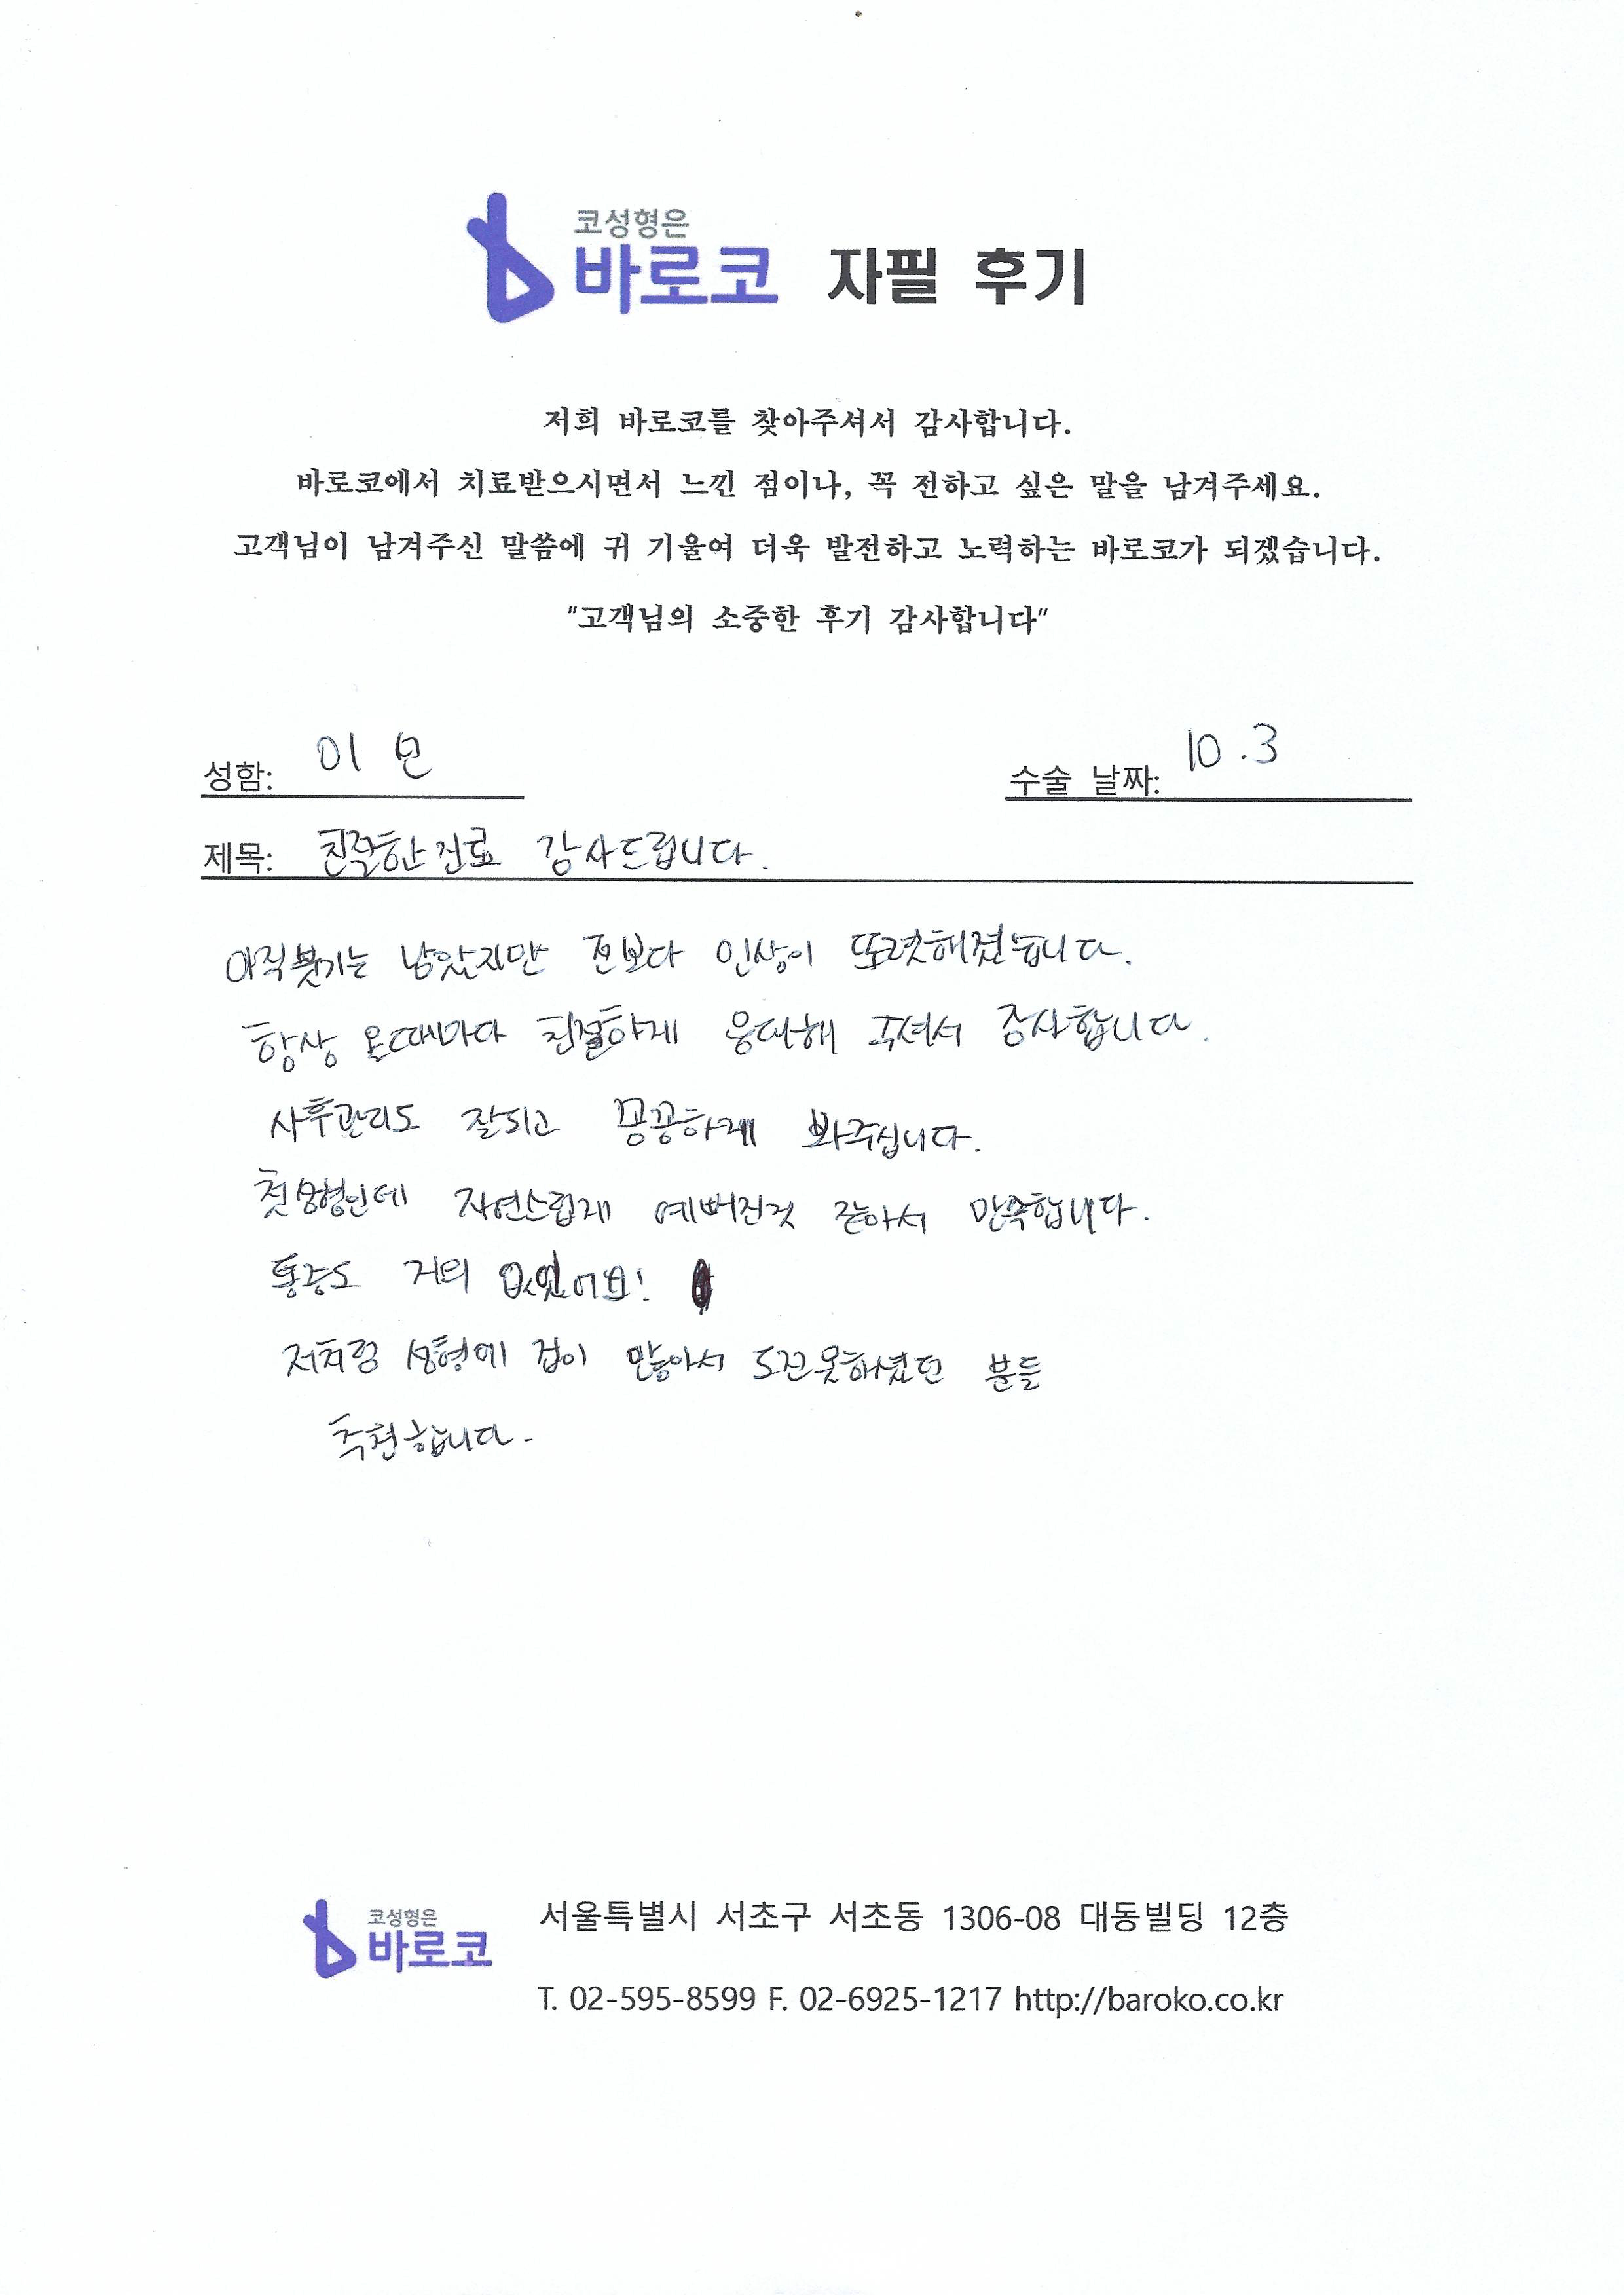 코성형은
바로코 자필 후기
저희 바로코를 찾아주셔서 감사합니다.
바로코에서 치료받으시면서 느낀 점이나, 꼭 전하고 싶은 말을 남겨주세요.
고객님이 남겨주신 말씀에 귀 기울여 더욱 발전하고 노력하는 바로코가 되겠습니다.
"고객님의 소중한 후기 감사합니다"
성함: 이 수술 날짜: 10.3
제목: 친절한 진료 감사드립니다.
아직 붓기는 남았지만 전보다 인상이 또렷해졌습니다.
항상 올때마다 친절하게 응대해 주셔서 감사합니다.
사후관리도 잘되고 꼼꼼하게 봐주십니다.
첫 성형인데 자연스럽게 예뻐진것 같아서 만족합니다.
통증도 거의 없었어요!
저처럼 성형에 겁이 많아서 도전못하셨던 분들
추천합니다.
코성형은
바로코
서울특별시 서초구 서초동 1306-08 대동빌딩 12층
T. 02-595-8599 F. 02-6925-1217 http://baroko.co.kr